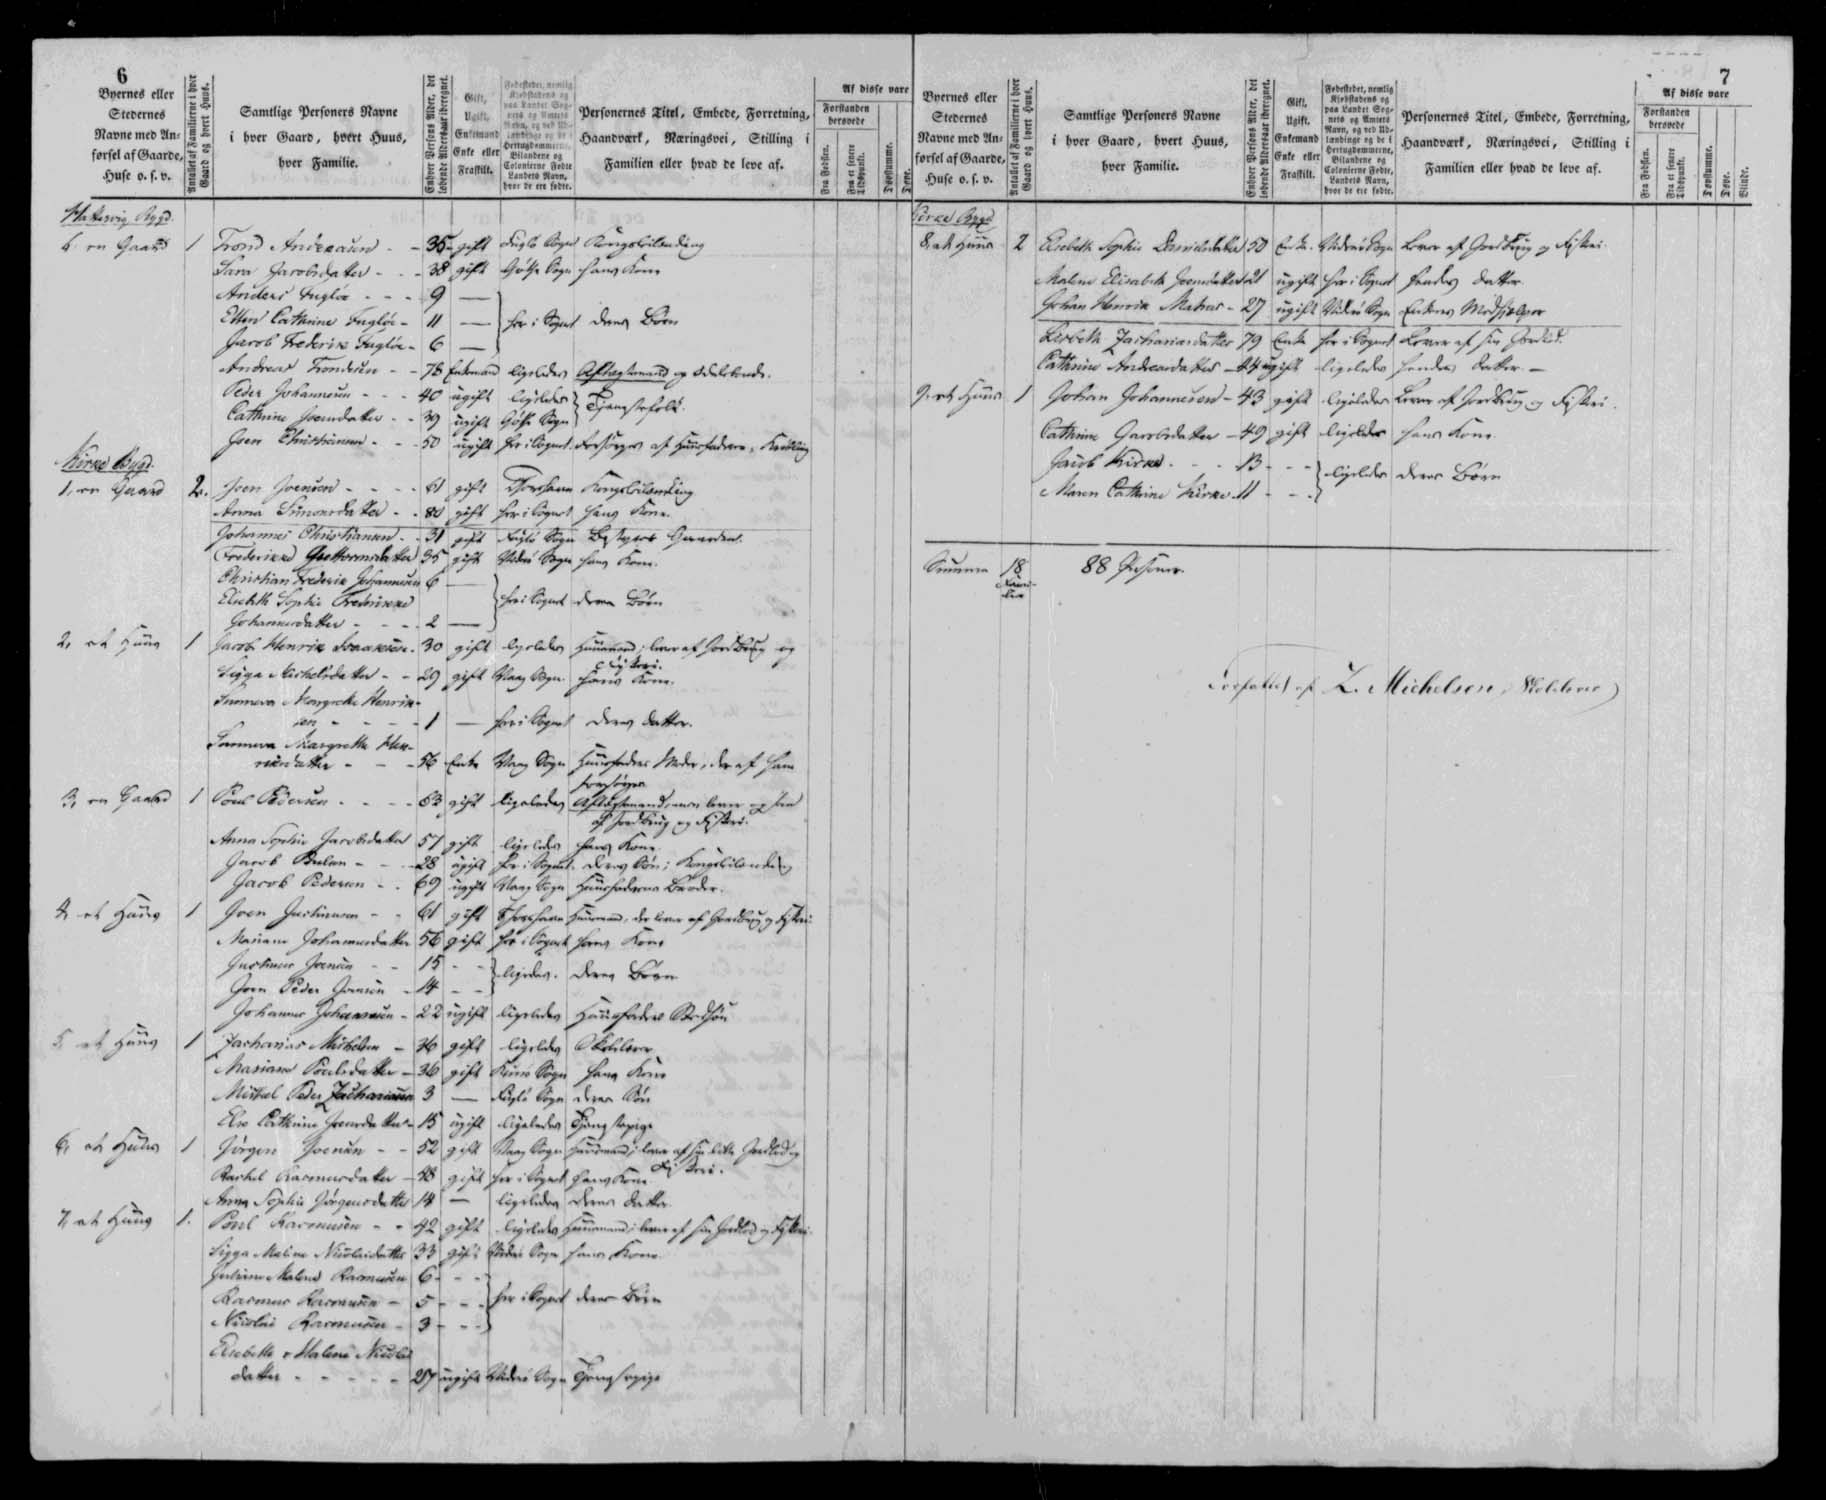 6
Byernes eller
Stedernes
Navne med An-
førsel af Gaarde,
Huse o. s. v.
Antallet af Familierne i hver
Gaard og hvert Huus.
Samtlige Personers Navne
i hver Gaard, hvert Huus,
hver Familie.
Enhver Persons Alder, det
løbende Aldersaar iberegnet.
Gift,
Ugift,
Enkemand
Enke eller
Fraskilt.
Fødestedet, nemlig
Kjøbstadens og
paa Landet Sog-
nets og Amtets
Navn, og ved Ud-
lændinge og de i
Hertugdømmerne,
Bilandene og
Colonierne Fødte,
Landets Navn,
hvor de ere fødte.
Personernes Titel, Embede, Forretning,
Haandværk, Næringsvei, Stilling i
Familien eller hvad de leve af.
Af disse vare
Forstanden
berøvede
Fra Fødslen.
Fra et senere
Tidspunkt.
Døvstumme.
Døve.
Hattervig Bygd.
6. en Gaard 1 Trond Andreasen - - 35 gift Fuglø Sogn Kongsbilending
Sara Jacobsdatter - - - 38 gift Gøthe Sogn hans Kone
Anders Fugløe - - - 9 —
Ellen Cathrine Fugløe - 11 — her i Sognet deres Børn
Jacob Frederik Fugløe - 6 —
Andreas Trondesen - - 78 Enkemand ligeledes Aftægtsmand og
Peder Johannesen - - - 40 ugift ligeledes
Cathrine Joensdatter - - 39 ugift Gøthe Sogn Tjenestefolk.
Joen Christiansen - - - 50 ugift her i Sognet forsørges af Huusfaderen,
Kirke Bygd.
1, en Gaard 2. Joen Joensen - - - - 61 gift Thorshavn Kongsbilending
Anna Simonsdatter - - 80 gift her i Sognet hans Kone.
Johannes Christiansen - - 31 gift Fuglø Sogn Bestyrer Gaarden.
Frederikke Guttormsdatter 35 gift Viderø Sogn hans Kone.
Christian Frederik Johannesen 6 —
Elsebeth Sophie Frederikke her i Sognet deres Børn
Johannesdatter - - - - 2 —
2, et Huus 1 Jacob Henrik Isaaksen - 30 gift ligeledes Huusmand, lever af Jordbrug og
Fiskeri.
Sigga Michelsdatter - - 29 gift Waag Sogn hans Kone.
Sunneva Margrethe Henrik-
sen - - - - - 1 — her i Sognet deres Datter.
Sunneva Margrethe Hen-
riksdatter - - - 56 Enke Waag Sogn Huusfaders Moder, der af ham
forsørges
3, en Gaard 1 Poul Pedersen - - - - 63 gift ligeledes Aftægtsmand,
af Jordbrug og Fiskeri.
Anna Sophie Jacobsdatter 57 gift ligeledes hans Kone.
Jacob Poulsen - - - 28 ugift her i Sognet deres Søn; Kongsbilending
Jacob Pedersen - - 69 ugift Waag Sogn Huusfaderens Broder.
4, et Huus 1 Joen Justinusen - - 61 gift Thorshavn Huusmand, der lever af Jordbrug og Fiskeri
Mariane Johannesdatter 56 gift her i Sognet hans Kone
Justinus Joensen - - 15 - -
Joen Peder Joensen - 14 - - ligeledes. deres Børn
Johannes Johannesen - 22 ugift ligeledes Huusfaders Stedsøn
5, et Huus 1 Zacharias Michelsen - 36 gift ligeledes Skolelærer
Mariane Poulsdatter - 36 gift Kunø Sogn hans Kone
Michael Peder Zachariasen 3 — Fuglø Sogn deres Søn
Else Cathrine Joensdatter - 15 ugift ligeledes Tjenestepige
6, et Huus 1 Jørgen Joensen - - 52 gift Waag Sogn Huusmand; lever af sin lille Jordlod og
Fiskeri.
Rachel Rasmusdatter - 48 gift her i Sognet hans Kone
Anna Sophie Jørgensdatter 14 — ligeledes deres Datter
7, et Huus 1. Poul Rasmusen - - 42 gift ligeledes Huusmand; lever af sin Jordlod og Fiskeri.
Sigga Malene Nicolaidatter 33 gift Viderø Sogn hans Kone
Juliane Malene Rasmusen 6 - - -
Rasmus Rasmusen - 5 - - - her i Sognet deres Børn
Nicolai Rasmusen - 3 - - -
Elsebeth Malene Nicolai
datter - - - - - 27 ugift Viderø Sogn Tjenestepige
7
Byernes eller
Stedernes
Navne med An-
førsel af Gaarde,
Huse o. s. v.
Antallet af Familierne i hver
Gaard og hvert Huus.
Samtlige Personers Navne
i hver Gaard, hvert Huus,
hver Familie.
Enhver Persons Alder, det
løbende Aldersaar iberegnet.
Gift,
Ugift,
Enkemand
Enke eller
Fraskilt.
Fødestedet, nemlig
Kjøbstadens og
paa Landet Sog-
nets og Amtets
Navn, og ved Ud-
lændinge og de i
Hertugdømmerne,
Bilandene og
Colonierne Fødte,
Landets Navn,
hvor de ere fødte.
Personernes Titel, Embede, Forretning,
Haandværk, Næringsvei, Stilling i
Familien eller hvad de leve af.
Af disse vare
Forstanden
berøvede
Fra Fødslen.
Fra et senere
Tidspunkt.
Døvstumme.
Døve.
Blinde.
Kirke Bygd
8, et Huus 2 Elsebeth Sophie Danielsdatter 50 Enke. Viderø Sogn Lever af Jordbrug og Fiskeri.
Malene Elisabeth Joensdatter 21 ugift her i Sognet hendes Datter
Johan Henrik Matras - 27 ugift Viderø Sogn Enkens Medhjælper
Lisbeth Zachariasdatter 79 Enke her i Sognet Lever af sin Jordlod.
Cathrine Andreasdatter - 44 ugift ligeledes hendes Datter. -
9, et Huus 1 Johan Johannesen - 43 gift ligeledes Lever af Jordbrug og Fiskeri.
Cathrine Jacobsdatter - 49 gift ligeledes hans Kone
Jacob Kirke - - - 13 - - -
Maren Cathrine Kirke 11 - - - ligeledes deres Børn
Summa 18 88 Personer.
Fami-
lier
Forfattet af Z. Michelsen, Skolelærer